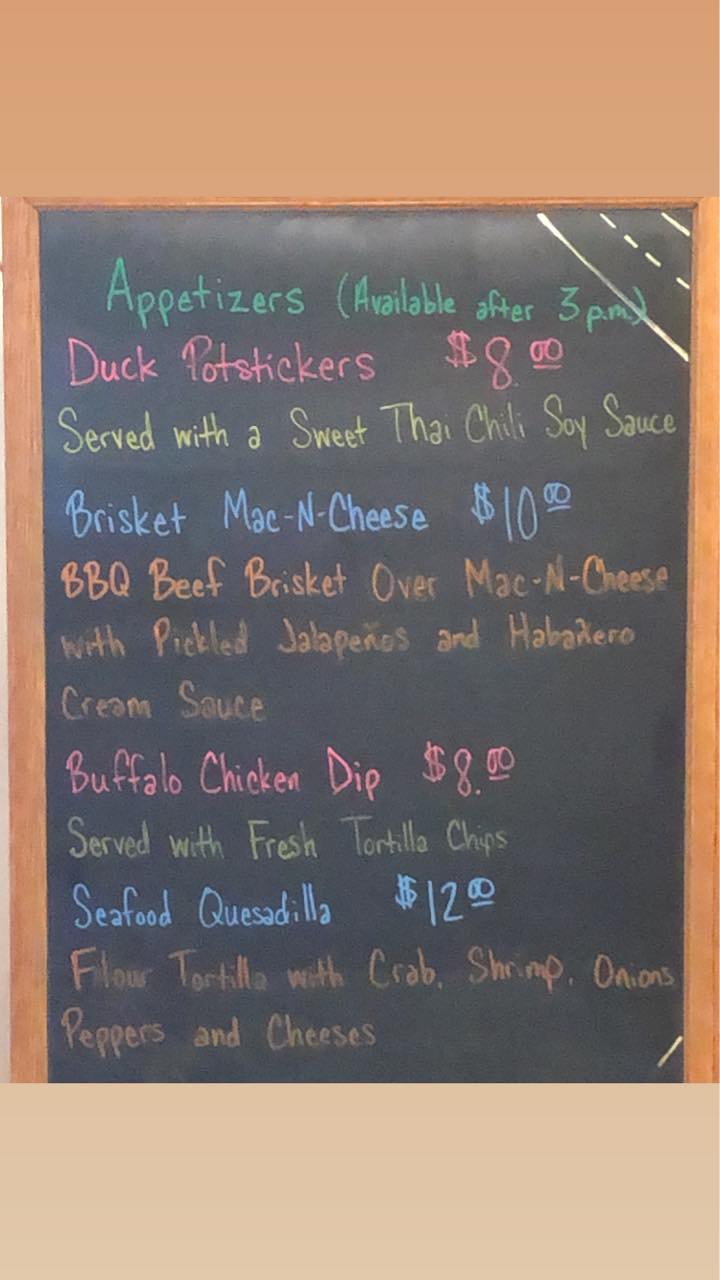 Appetizers (Available after 3 p.m.)
Duck Potstickers $8.00
Served with a Sweet Thai Chili Soy Sauce
Brisket Mac-N-Cheese $10.00
BBQ Beef Brisket Over Mac-N-Cheese
with Pickled Jalapeños and Habañero
Cream Sauce
Buffalo Chicken Dip $8.00
Served with Fresh Tortilla Chips
Seafood Quesadilla $12.00
Flour Tortilla with Crab, Shrimp, Onions
Peppers and Cheeses